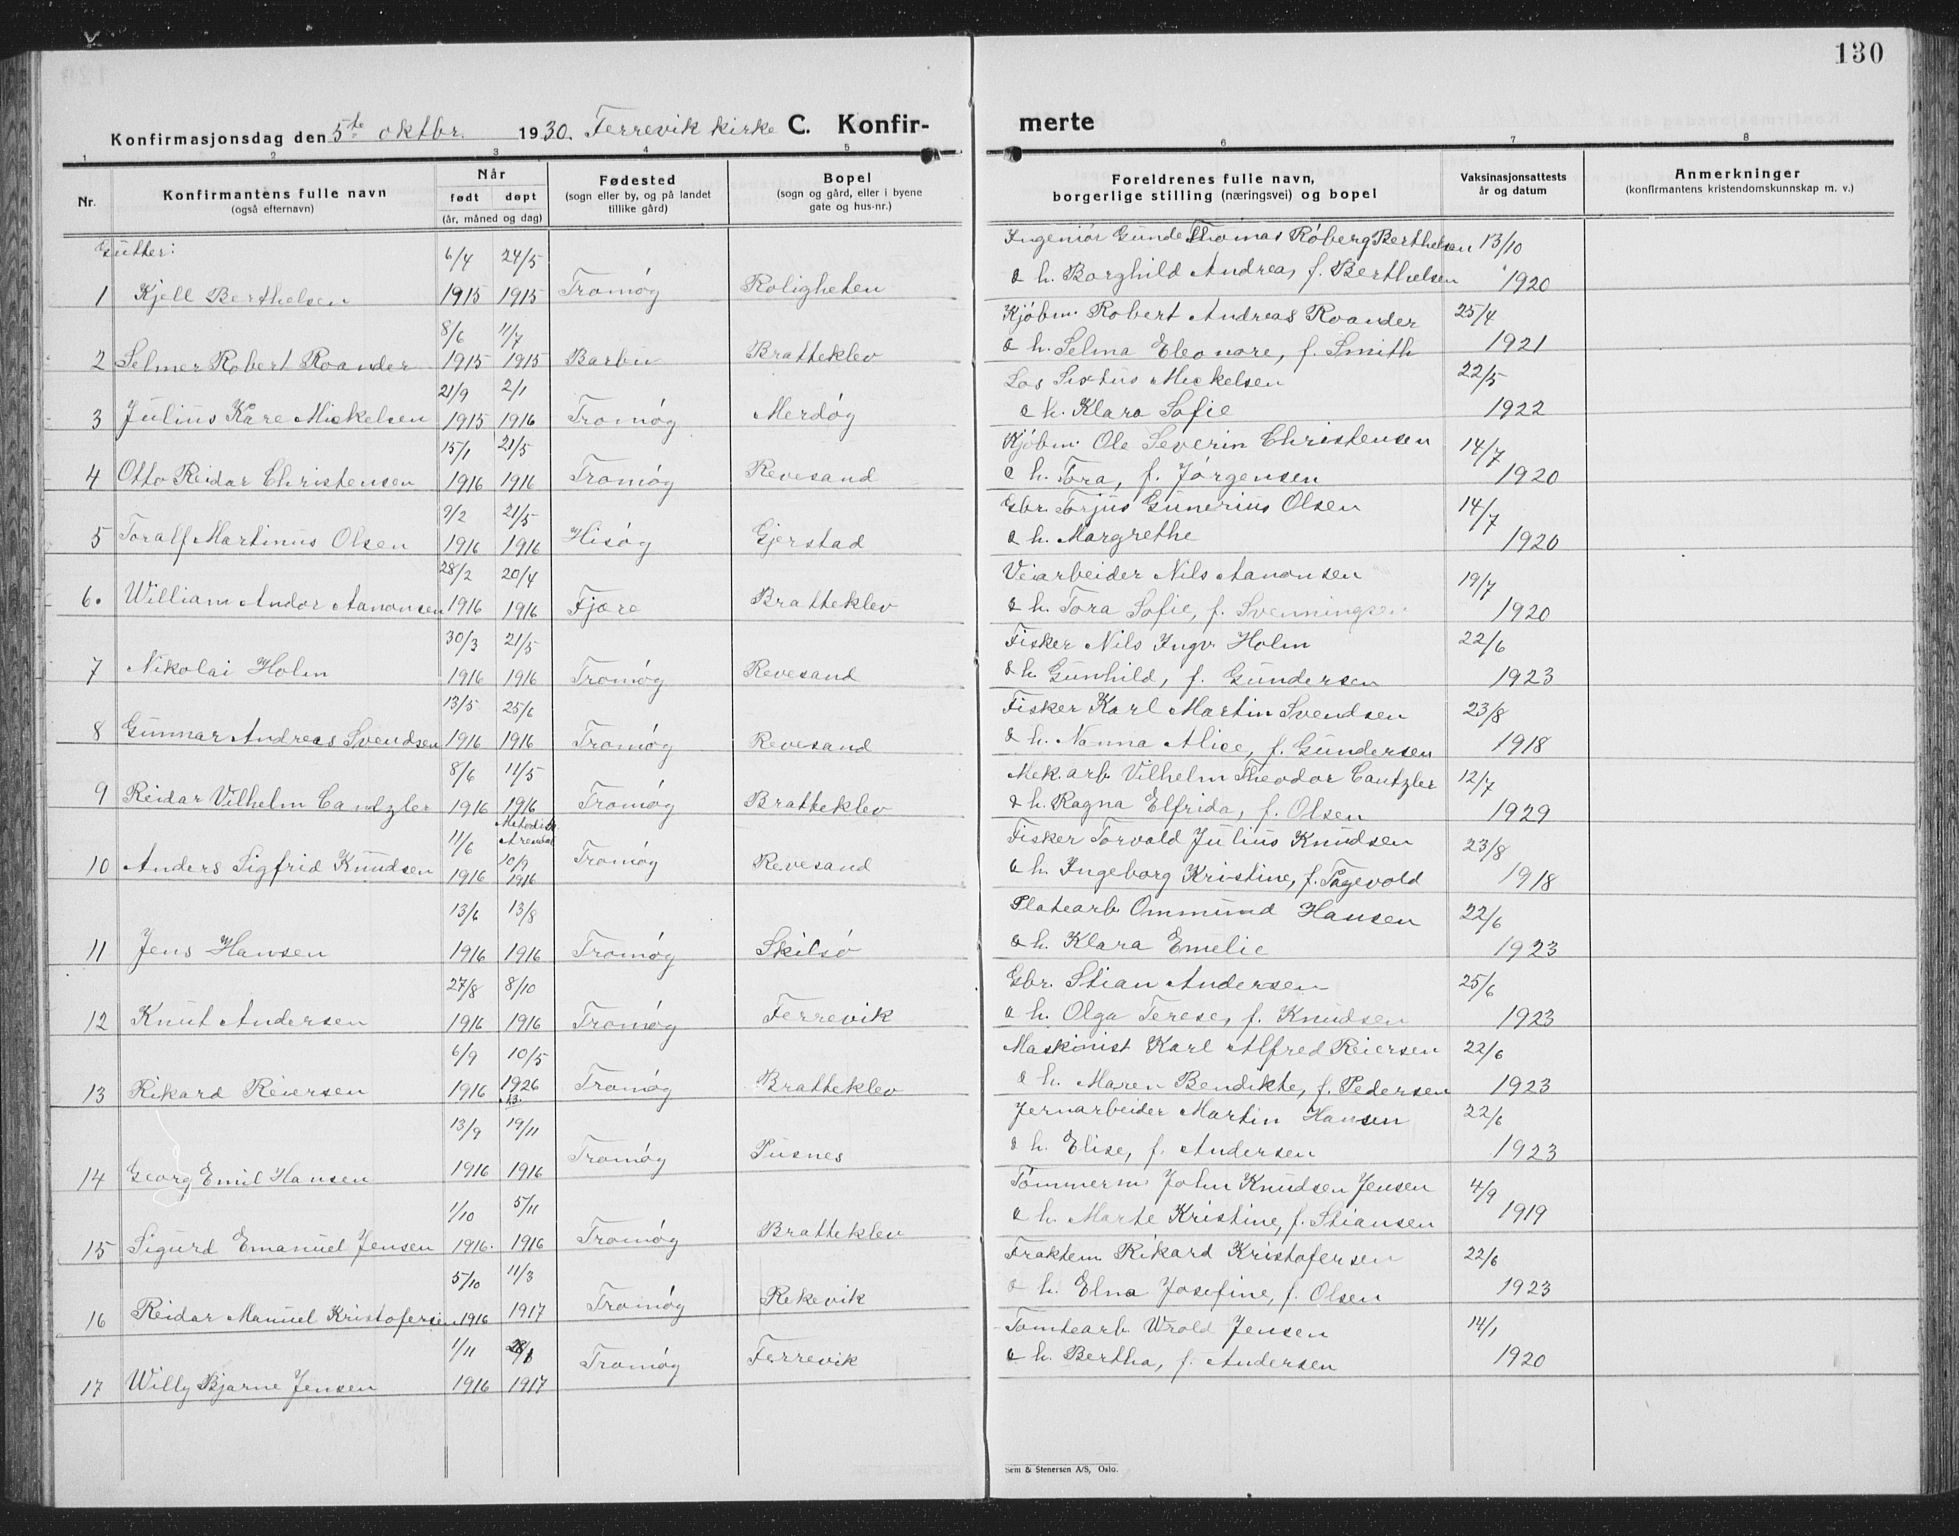 130
Konfirmasjonsdag den 5te oktbr. 1930. Færrevik kirke C. Konfir-
merte
1 2 3 4 5 6 7 8
Nr.
Konfirmantens fulle navn
(også efternavn)
Når
født døpt
(år, måned og dag)
Fødested
(sogn eller by, og på landet
tillike gård)
Bopel
(sogn og gård, eller i byene
gate og hus-nr.)
Foreldrenes fulle navn,
borgerlige stilling (næringsvei) og bopel
Vaksinasjonsattests
år og datum
Anmerkninger
(konfirmantens kristendomskunnskap m. v.)
Gutter:
6/4 24/5 Ingeniør Gunde Thomas Roberg Berthelsen 13/10
1 Kjell Berthelsen 1915 1915 Tromøy Roligheten & h. Borghild Andrea, f. Berthelsen 1920
8/6 11/7 Kjøbm. Robert Andreas Roander 25/4
2 Selmer Robert Roander 1915 1915 Barbu Bratteklev & h. Selma Eleonore, f. Smith 1921
21/9 2/1 Los Sixtus Mickelsen 22/5
3 Julius Kåre Mickelsen 1915 1916 Tromøy Merdøy & h. Klara Sofie 1922
15/1 21/5 Kjøbm. Ole Severin Christensen 14/7
4 Otto Reidar Christensen 1916 1916 Tromøy Revesand & h. Tora, f. Jørgensen 1920
9/2 21/5 Gbr. Torjus Gunerius Olsen 14/7
5 Toralf Martinus Olsen 1916 1916 Hisøy Gjerstad & h. Margrethe 1920
28/2 20/4 Veiarbeider Nils Aanonsen 19/7
6. William Andor Aanonsen 1916 1916 Fjære Bratteklev & h. Tora Sofie, f. Svenningsen 1920
30/3 21/5 Fisker Nils Ingv. Holm 22/6
7 Nikolai Holm 1916 1916 Tromøy Revesand & h. Gunhild, f. Gundersen 1923
13/5 25/6 Fisker Karl Martin Svendsen 23/8
8 Gunnar Andreas Svendsen 1916 1916 Tromøy Revesand & h. Nanna Alice, f. Gundersen 1918
8/6 11/5 Mek. arb. Vilhelm Theodor Cantzler 12/7
9 Reidar Vilhelm Cantzler 1916 1916 Tromøy Bratteklev & h. Ragna Elfrida, f. Olsen 1929
Metodistk.
Arendal
11/6 10/9 Fisker Torvald Julius Knudsen 23/8
10 Anders Sigfrid Knudsen 1916 1916 Tromøy Revesand & h. Ingeborg Kristine, f. Fagevold 1918
13/6 13/8 Platearb. Ommund Hansen 22/6
11 Jens Hansen 1916 1916 Tromøy Skilsø & h. Klara Emelie 1923
27/8 8/10 Gbr. Stian Andersen 25/6
12 Knut Andersen 1916 1916 Tromøy Færrevik & h. Olga Terese, f. Knudsen 1923
6/9 10/5 Maskinist Karl Alfred Reiersen 22/6
13 Rikard Reiersen 1916 1926 Tromøy Bratteklev & h. Maren Bendikte, f. Pedersen 1923
13/9 19/11 Jernarbeider Martin Hansen 22/6
14 Georg Emil Hansen 1916 1916 Tromøy Pusnes & h. Elise, f. Andersen 1923
1/10 5/11 Tømmerm. John Knudsen Jensen 4/9
15 Sigurd Emanuel Jensen 1916. 1916 Tromøy Bratteklev & h. Marte Kristine, f. Stiansen 1919
5/10 11/3 Fraktem. Rikard Kristofersen 22/6
16 Reidar Manuel Kristofersen 1916 1917 Tromøy Rekevik & h. Elna Josefine, f. Olsen 1923
1/11 Tomtearb. Wrold Jensen 14/1
17 Willy Bjarne Jensen 1916 1917 Tromøy Færrevik & h. Bertha, f. Andersen 1920
Sem & Stenersen A/S, Oslo.